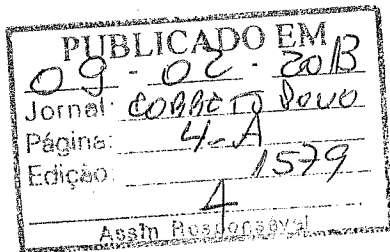 PUBLICADO EM
09 - 02 - 2013
Jornal: CORREIO DO POVO
Página: 4-A
Edição: 1579
Assin Responsável